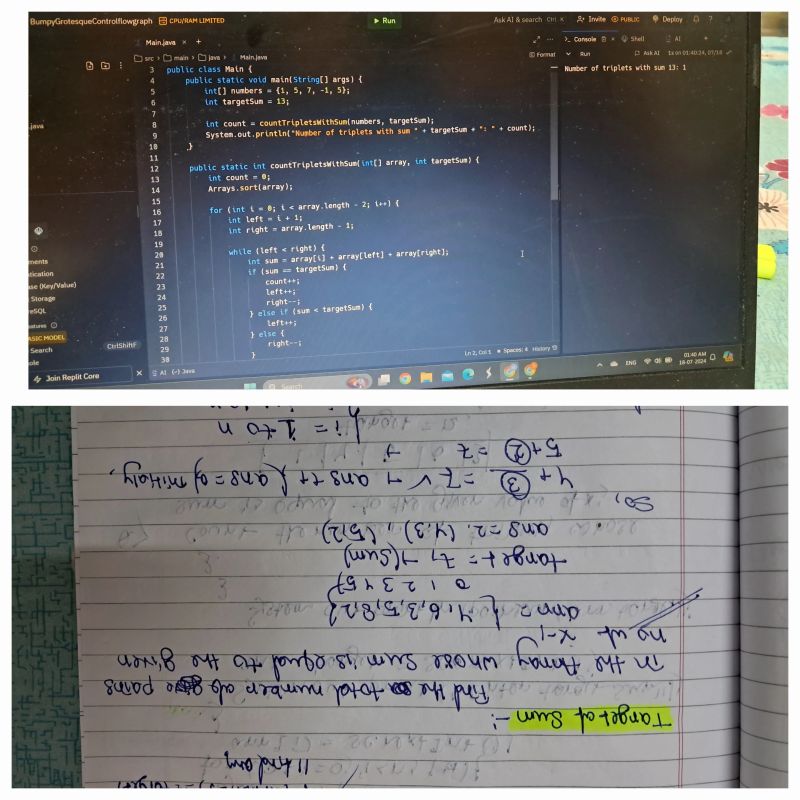 BumpyGrotesqueControlflowgraph CPU/RAM LIMITED Run Ask AI & search Ctrl K Invite PUBLIC Deploy
Main.java × + Console Shell AI +
src > main > java > Main.java Format Run Ask AI 1s on 01:40:24, 07/18
Number of triplets with sum 13: 1
3 public class Main {
4 public static void main(String[] args) {
5 int[] numbers = {1, 5, 7, -1, 5};
6 int targetSum = 13;
7
8 int count = countTripletsWithSum(numbers, targetSum);
9 System.out.println("Number of triplets with sum " + targetSum + ": " + count);
10 }
11
12 public static int countTripletsWithSum(int[] array, int targetSum) {
13 int count = 0;
14 Arrays.sort(array);
15
16 for (int i = 0; i < array.length - 2; i++) {
17 int left = i + 1;
18 int right = array.length - 1;
19
20 while (left < right) {
21 int sum = array[i] + array[left] + array[right];
22 if (sum == targetSum) {
23 count++;
24 left++;
25 right--;
26 } else if (sum < targetSum) {
27 left++;
28 } else {
29 right--;
30 }
.java
ments
tication
se (Key/Value)
Storage
reSQL
eatures
ASIC MODEL
Search Ctrl Shift F
ole
Join Replit Core
AI {-} Java Ln 2, Col 1 Spaces: 4 History
Search ENG 01:40 AM
18-07-2024
Target of Sum :-
Find the total number of pairs
in the Array whose sum is equal to the given
no at x-1
arr = {4,6,3,5,8,2}
0 1 2 3 4 5
target = 7, → (sum)
ans = 2. (4,3), (5,2)
So,
4 + 3 = 7 ✓ → ans++ { ans = 0 initially,
5 + 2 = 7 →
i = 1 to n